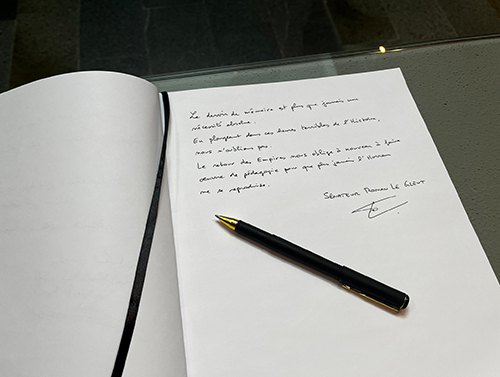 Le devoir de mémoire est plus que jamais une
nécessité absolue.
En plongeant dans ces heures terribles de l'Histoire,
nous n'oublions pas.
Le retour des Empires nous oblige à nouveau à faire
œuvre de pédagogie pour que plus jamais l'Horreur
ne se reproduise.
SÉNATEUR RONAN LE GLEUT